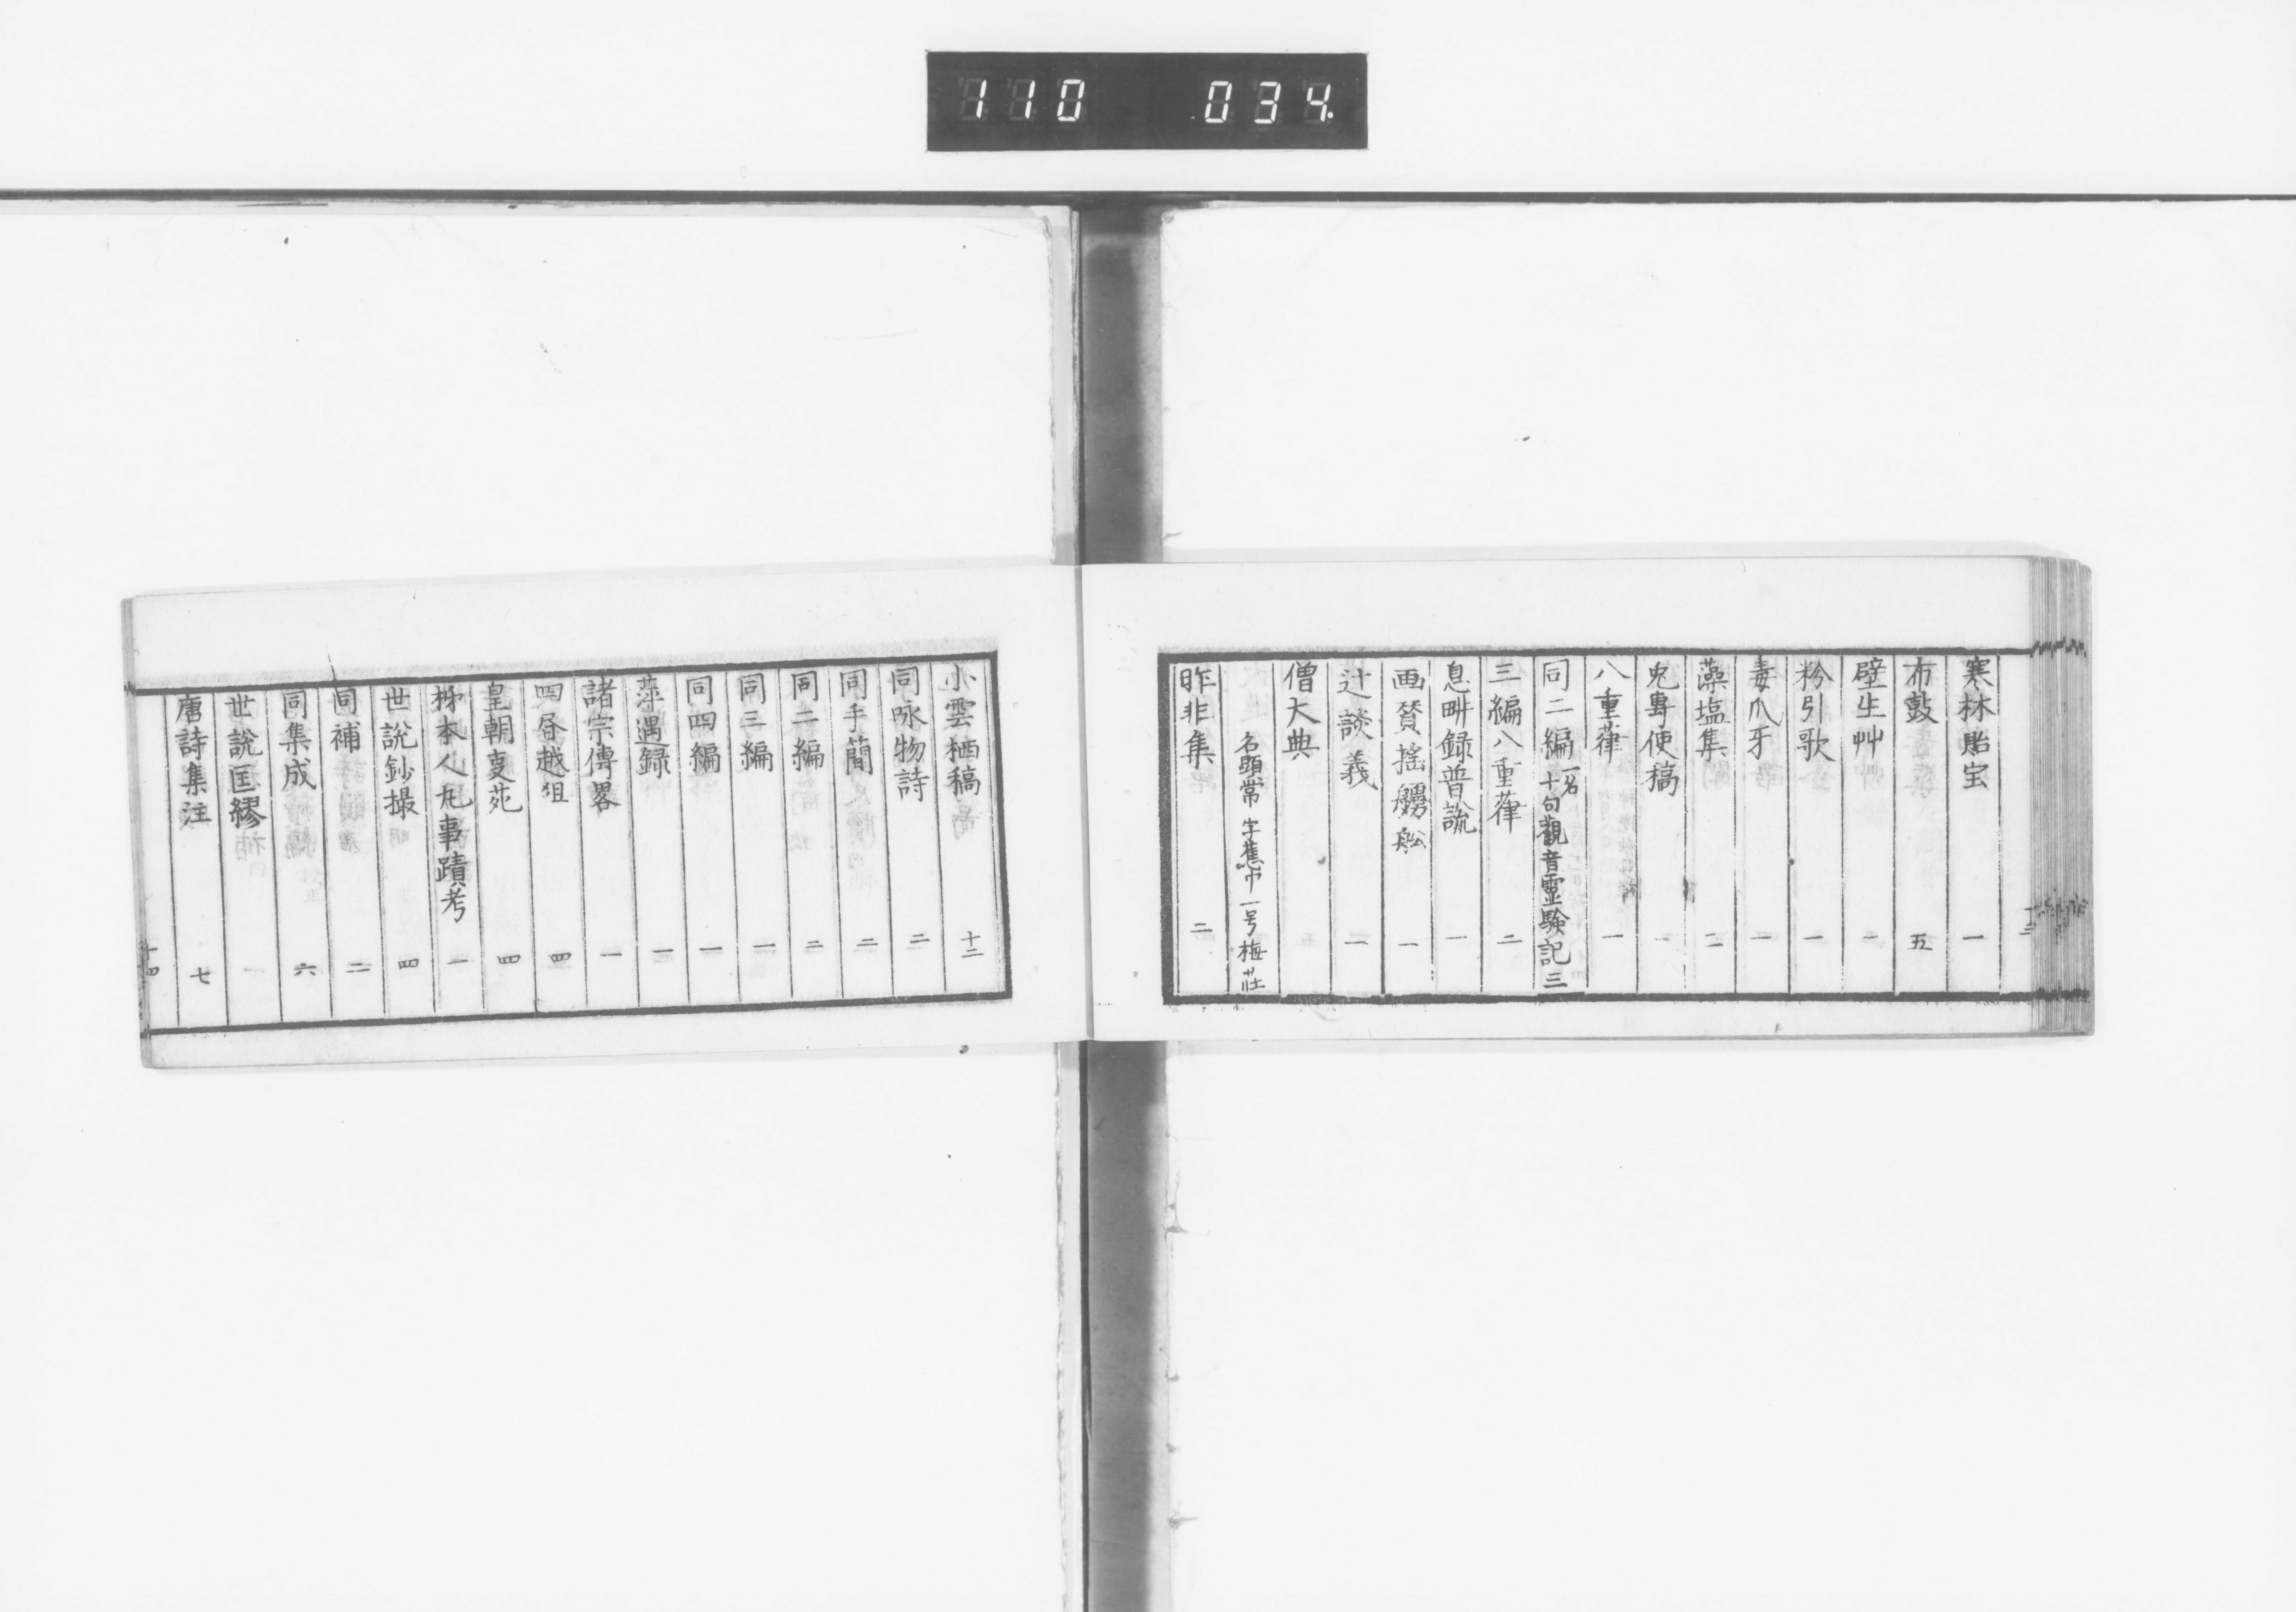 110 034
寒林貽宝 一
布鼓 五
壁生艸 一
粉引歌 一
毒爪牙 一
藻塩集 二
兎專使稿 一
八重葎 一
同二編 一名十句觀音靈驗記 三
三編八重葎 二
息畊録普説 一
画賛搖艣舩 一
辻談義 二
僧大典
名顕常 字蕉中 一号梅荘
昨非集 二
十三
小雲栖稿 十二
同咏物詩 二
同手簡 二
同二編 二
同三編 一
同四編 一
萍遇録 一
諸宗傳畧 一
四昏越俎 四
皇朝叓苑 四
柹本人丸事蹟考 一
世説鈔撮 四
同補 二
同集成 六
世説匡繆 一
唐詩集注 七
十四